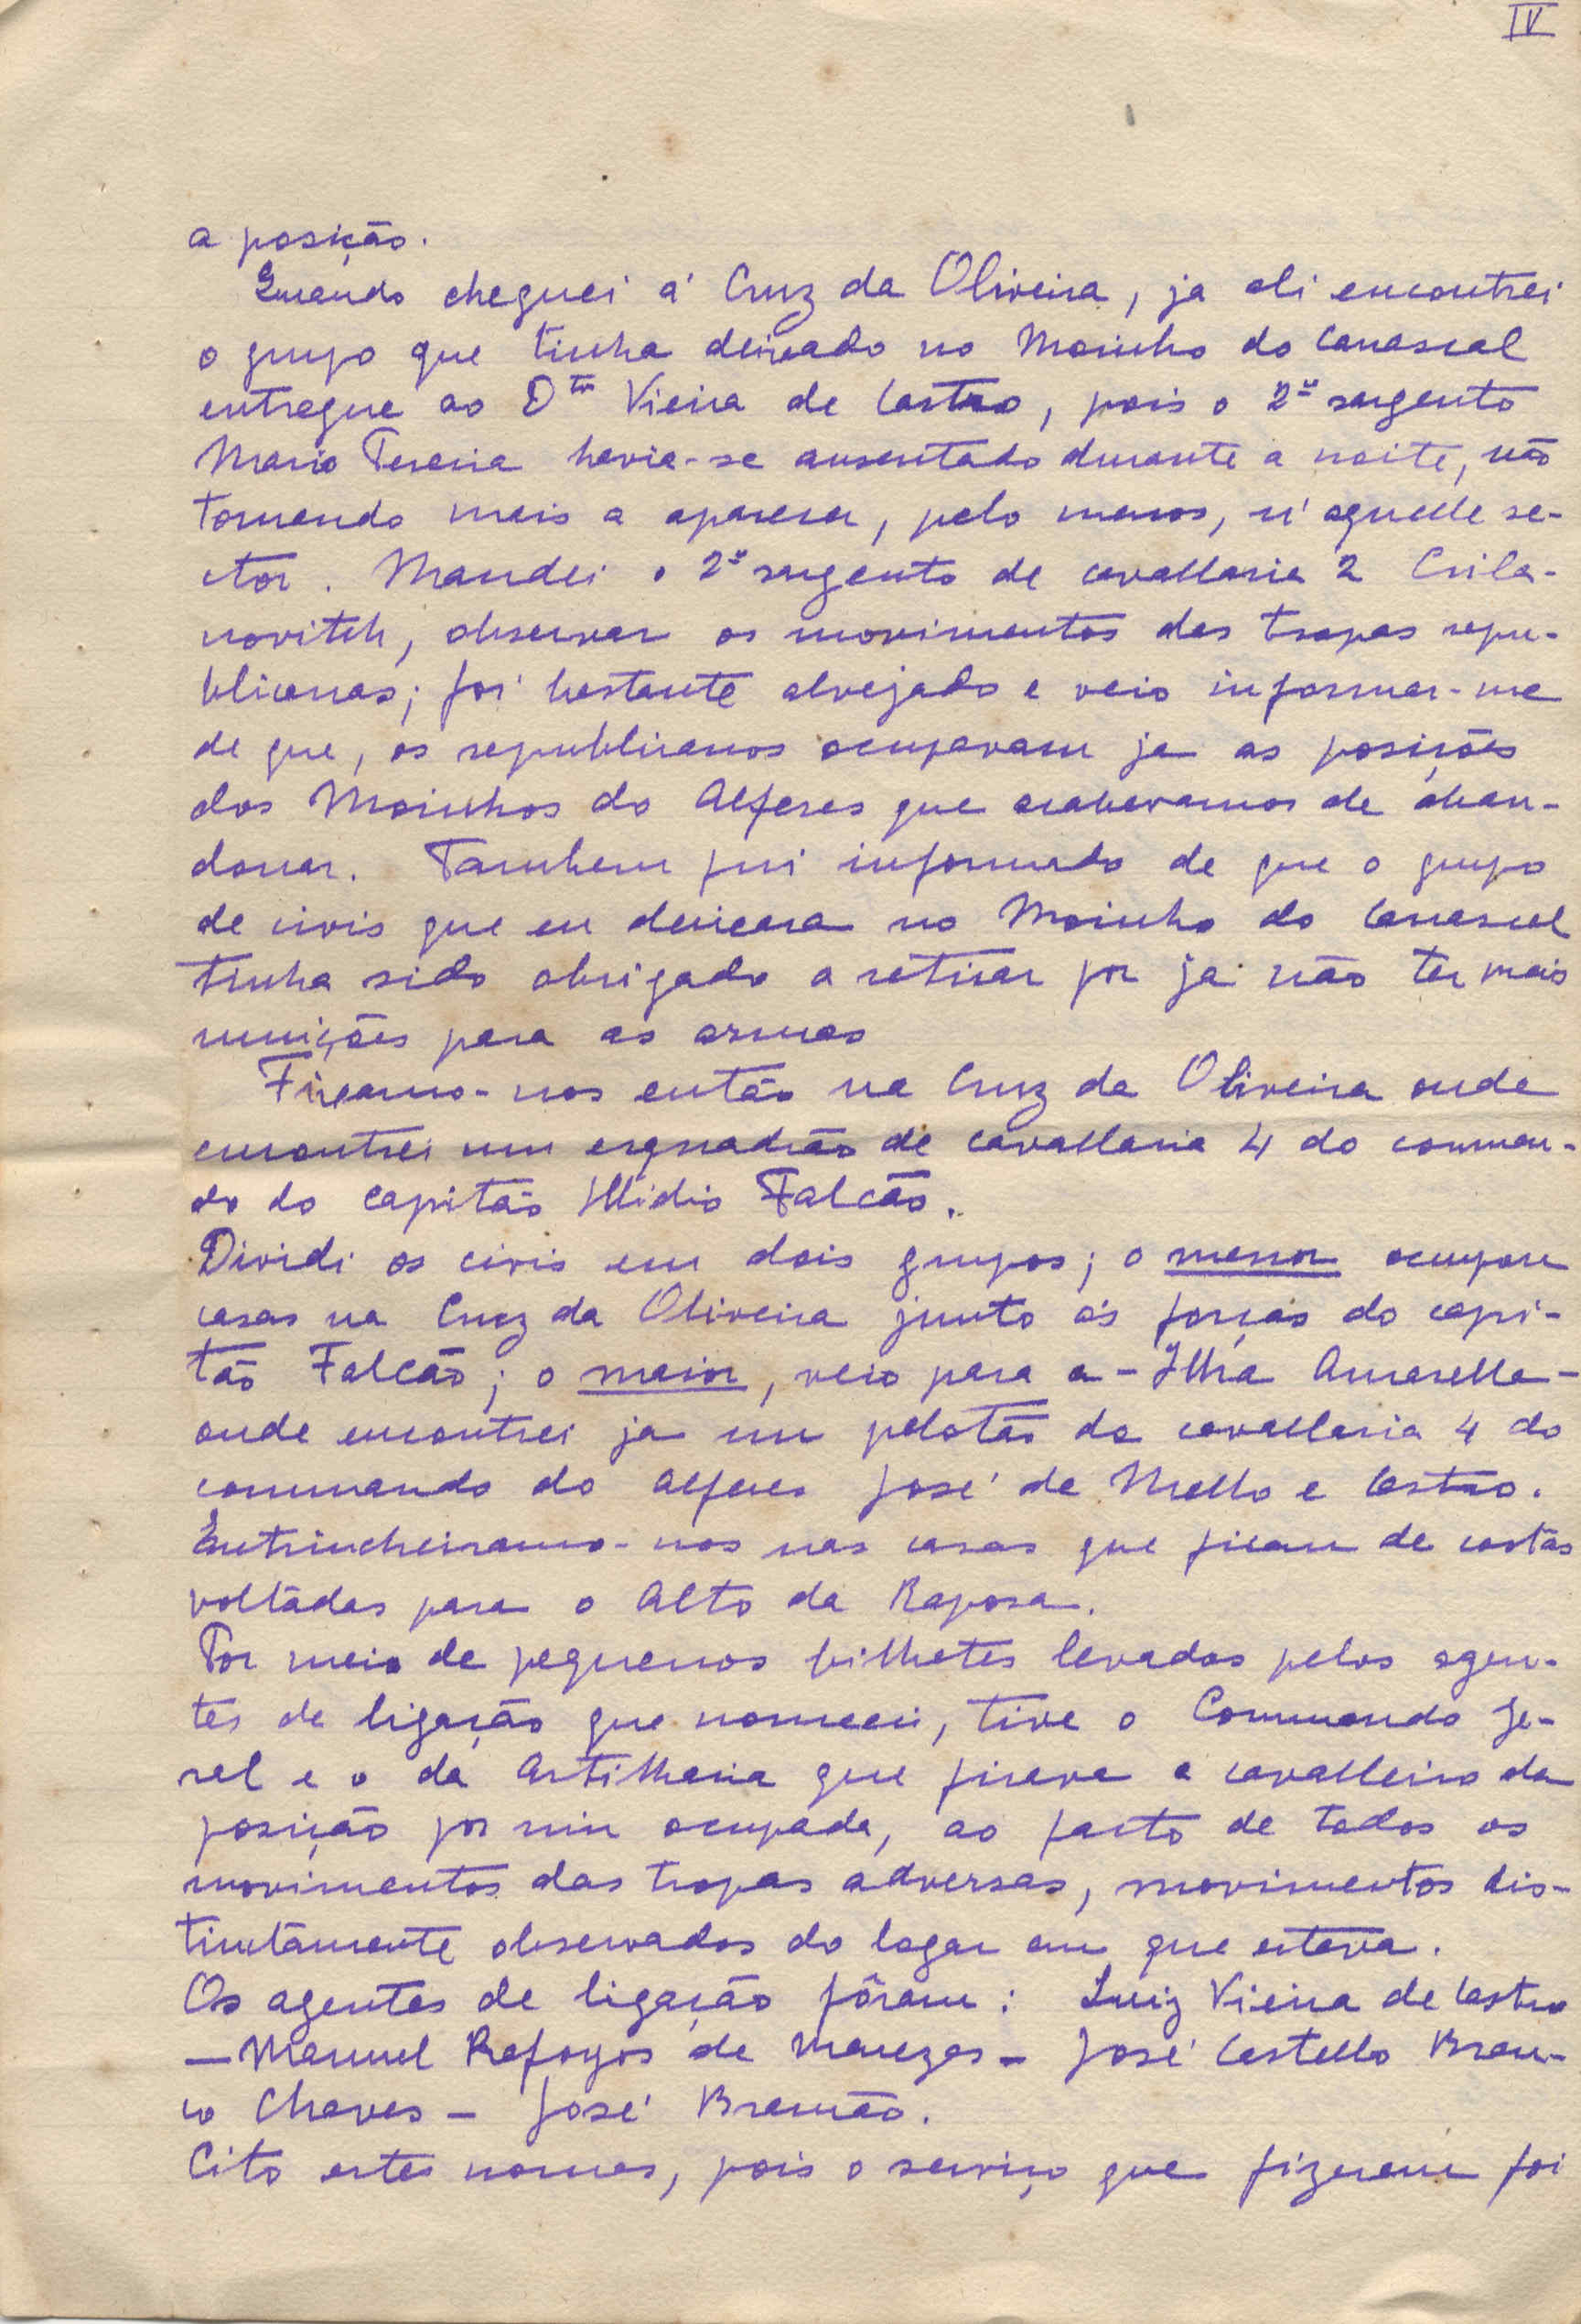 IV
a posição.
Quando cheguei á Cruz da Oliveira, ja ali encontrei
o grupo que tinha deixado no Moinho do Carrascal
entregue ao Dtr Vieira de Castro, pois o 2º sargento
Mario Pereira havia-se ausentado durante a noite, não
tornando mais a aparecer, pelo menos, n'aquelle se-
ctor. Mandei o 2º sargento de cavallaria 2 Csila-
novitch, observar os movimentos das tropas repu-
blicanas; foi bastante alvejado e veio informar-me
de que, os republicanos ocupavam ja as posições
dos Moinhos do Alferes que acabavamos de aban-
donar. Tambem fui informado de que o grupo
de civis que eu deixara no Moinho do Carrascal
tinha sido obrigado a retirar por ja não ter mais
munições para as armas
Ficamo-nos então na Cruz da Oliveira onde
encontrei um esquadrão de cavallaria 4 do comman-
do do capitão Illidio Falcão.
Dividi os civis em dois grupos; o menor ocupou
casas na Cruz da Oliveira junto ás forças do capi-
tão Falcão; o maior, veio para a - Ilha Amarella -
onde encontrei ja um pelotão da cavallaria 4 do
commando do alferes José de Mello e Castro.
Entrincheiramo-nos nas casas que ficam de costas
voltádas para o Alto da Raposa.
Por meio de pequenos bilhetes levados pelos agen-
tes de ligação que nomeei, tive o Commando Ge-
ral e o da Artilharia que ficava a cavalleiro da
posição por mim ocupada, ao facto de todos os
movimentos das tropas adversas, movimentos dis-
tinctamente observados do logar em que estava.
Os agentes de ligação fôram: Luiz Vieira de Castro
- Manuel Refoyos de Menezes - José Castello Bran-
co Chaves - José Bramão.
Cito estes nomes, pois o serviço que fizeram foi